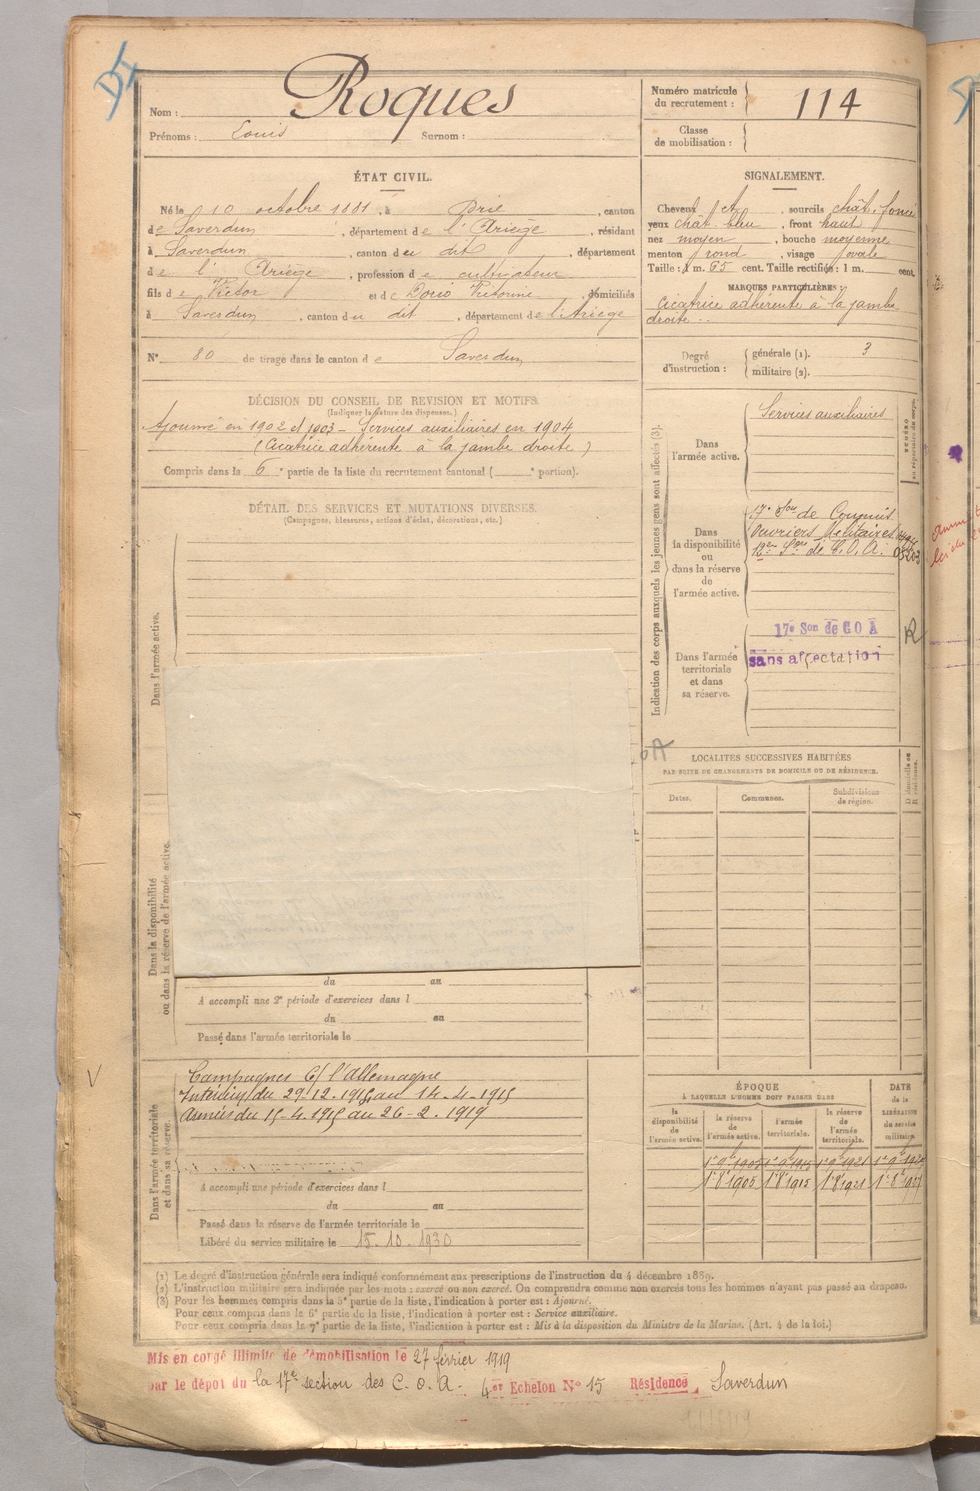 Nom : Roques
Prénoms : Louis Surnom :
Numéro matricule du recrutement : 114
Classe de mobilisation :
ÉTAT CIVIL.
Né le 10 octobre 1881, à Brie, canton
de Saverdun, département de l'Ariège, résidant
à Saverdun, canton du dit, département
de l'Ariège, profession de cultivateur
fils de Victor et de Dorio Victorine domiciliés
à Saverdun, canton du dit, département de l'Ariège
N° 80 de tirage dans le canton de Saverdun
SIGNALEMENT.
Cheveux et, sourcils chât. foncé
yeux chât. bleu, front haut
nez moyen, bouche moyenne
menton rond, visage ovale
Taille : 1 m. 65 cent. Taille rectifiée : 1 m. cent.
MARQUES PARTICULIÈRES :
Cicatrice adhérente à la jambe
droite
Degré d'instruction : générale (1). 3
militaire (2).
DÉCISION DU CONSEIL DE REVISION ET MOTIFS.
(Indiquer la nature des dispenses.)
Ajourné en 1902 et 1903 - Services auxiliaires en 1904
(Cicatrice adhérente à la jambe droite)
Compris dans la 6e partie de la liste du recrutement cantonal ( e portion).
DÉTAIL DES SERVICES ET MUTATIONS DIVERSES.
(Campagnes, blessures, actions d'éclat, décorations, etc.)
Indication des corps auxquels les jeunes gens sont affectés (3).
NUMÉRO au répertoire du corps.
Dans l'armée active.
Services auxiliaires
Dans la disponibilité ou dans la réserve de l'armée active.
17e Son de Commis
Ouvriers Militaires
Son de C. O. A.
Dans l'armée territoriale et dans sa réserve.
17e Son de C O A
sans affectation
R
Dans l'armée active.
Dans la disponibilité ou dans la réserve de l'armée active.
du au
A accompli une 2e période d'exercices dans l
du au
Passé dans l'armée territoriale le
LOCALITÉS SUCCESSIVES HABITÉES
PAR SUITE DE CHANGEMENTS DE DOMICILE OU DE RÉSIDENCE.
Dates. Communes. Subdivisions de région. D domicile ou R résidence.
Dans l'armée territoriale et dans sa réserve.
Campagnes C/ l'Allemagne
Intérieur du 29.12.1914 au 14-4-1915
Armées du 15.4.1915 au 26-2-1919
A accompli une période d'exercices dans l
du au
Passé dans la réserve de l'armée territoriale le
Libéré du service militaire le 15.10.1930
ÉPOQUE
À LAQUELLE L'HOMME DOIT PASSER DANS
DATE de la LIBÉRATION du service militaire.
la disponibilité de l'armée active. la réserve de l'armée active. l'armée territoriale. la réserve de l'armée territoriale.
1er 8bre 1905 1er 8bre 1915 1er 8bre 1921
(1) Le degré d'instruction générale sera indiqué conformément aux prescriptions de l'instruction du 4 décembre 1889.
(2) L'instruction militaire sera indiquée par les mots : exercé ou non exercé. On comprendra comme non exercés tous les hommes n'ayant pas passé au drapeau.
(3) Pour les hommes compris dans la 5e partie de la liste, l'indication à porter est : Ajourné.
Pour ceux compris dans la 6e partie de la liste, l'indication à porter est : Service auxiliaire.
Pour ceux compris dans la 7e partie de la liste, l'indication à porter est : Mis à la disposition du Ministre de la Marine. (Art. 4 de la loi.)
Mis en congé illimité de démobilisation le 27 février 1919
par le dépôt du la 17e section des C. O. A. 4er Echelon N° 15 Résidence Saverdun